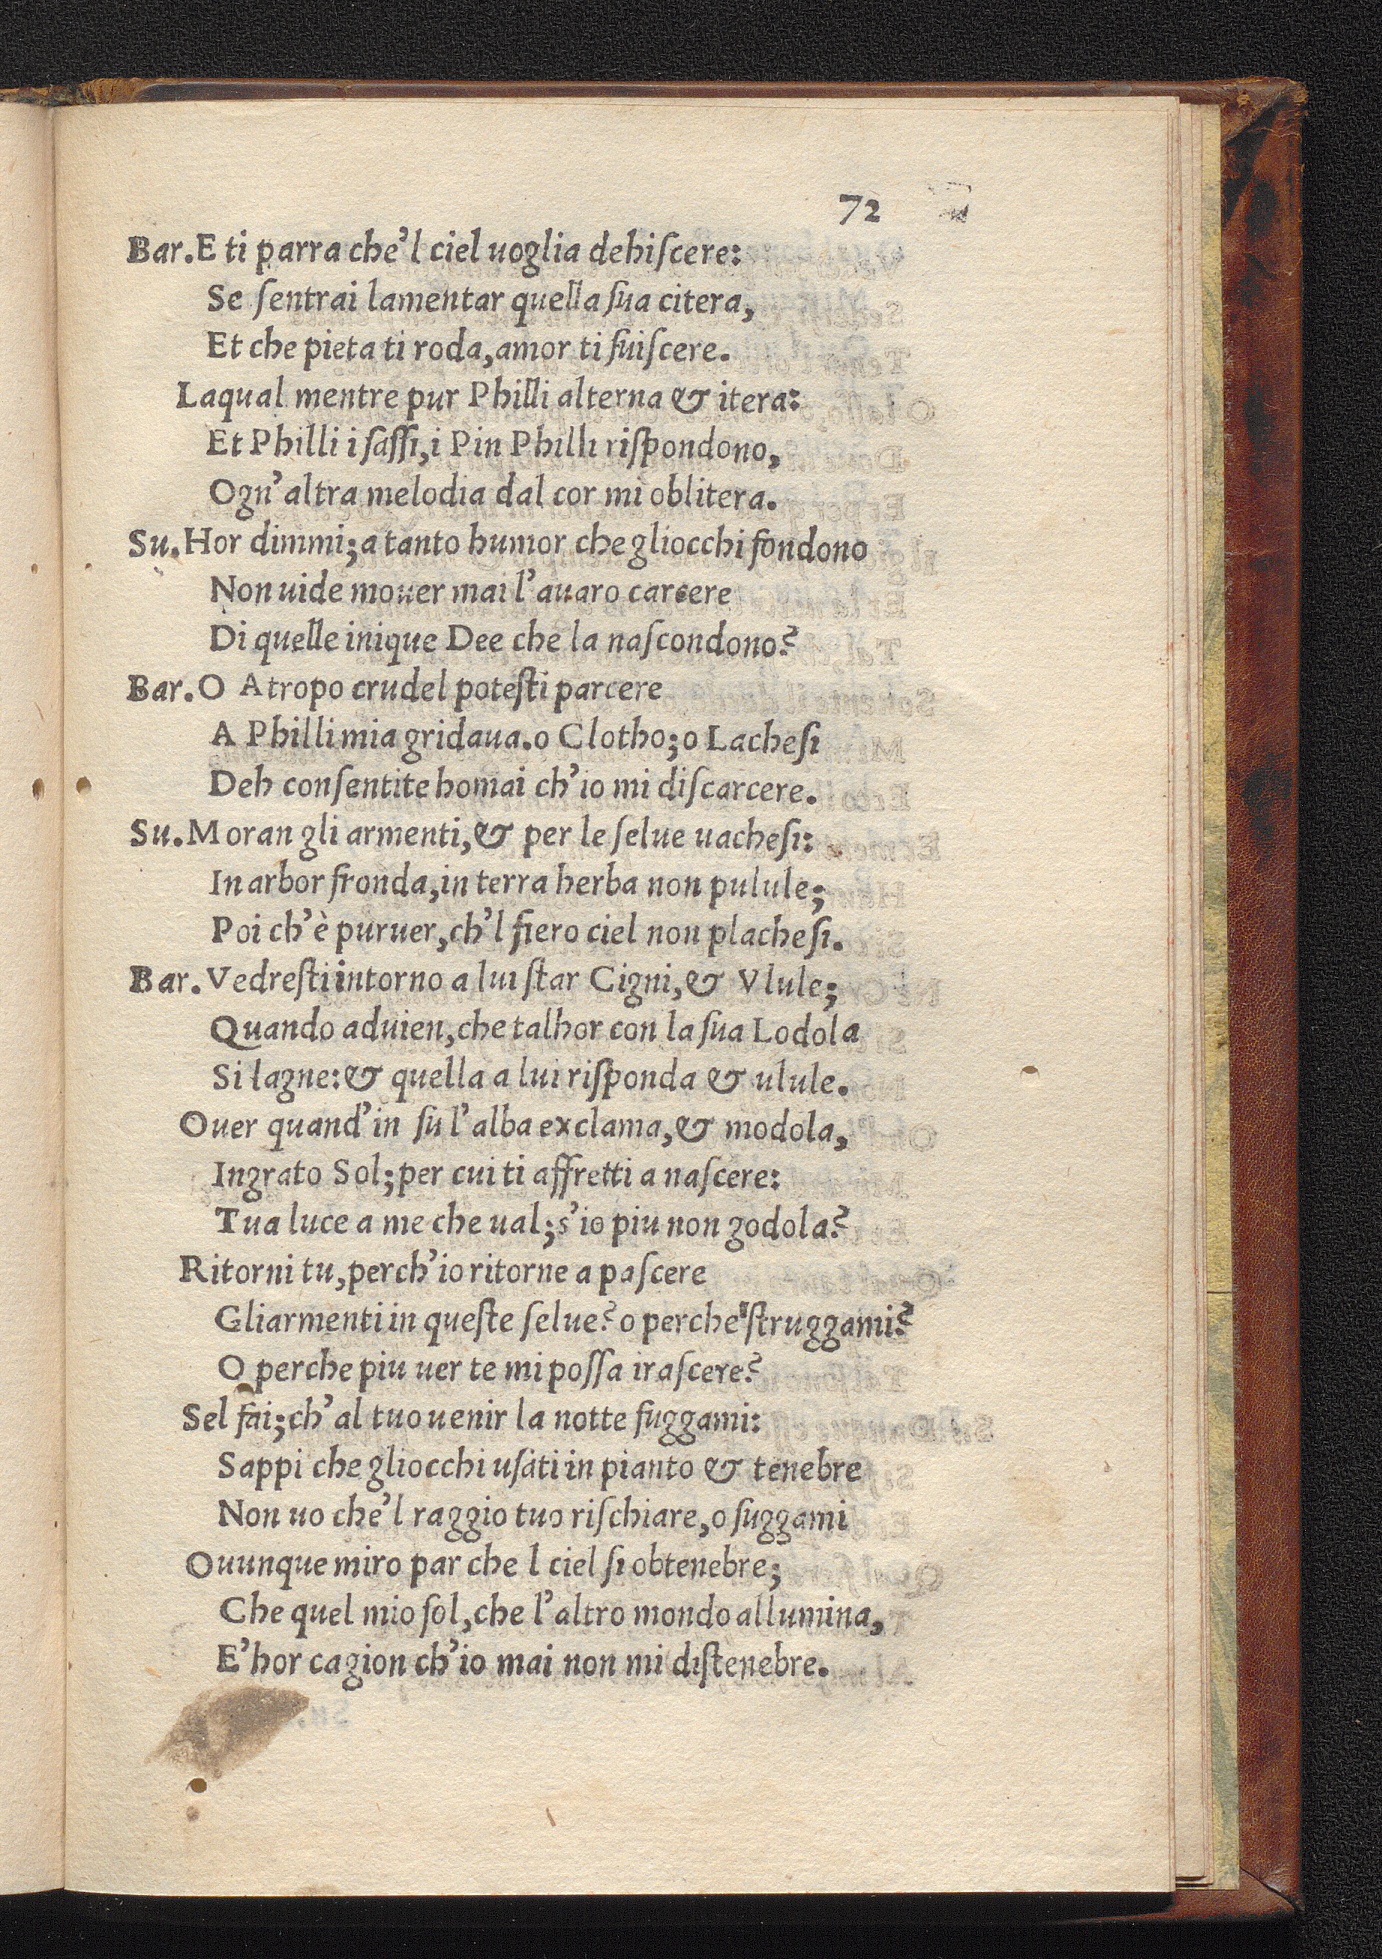 72
Bar. E ti parra che'l ciel uoglia dehiſcere:
Se ſentrai lamentar quella ſua citera,
Et che pieta ti roda, amor ti ſuiſcere.
Laqual mentre pur Philli alterna & itera:
Et Philli i ſaſſi, i Pin Philli riſpondono,
Ogn'altra melodia dal cor mi oblitera.
Su. Hor dimmi; a tanto humor che gliocchi fondono
Non uide mouer mai l'auaro carcere
Di quelle inique Dee che la naſcondono?
Bar. O Atropo crudel poteſti parcere
A Philli mia gridaua. o Clotho; o Lacheſi
Deh conſentite homai ch'io mi diſcarcere.
Su. Moran gli armenti, & per le ſelue uacheſi:
In arbor fronda, in terra herba non pulule;
Poi ch'è puruer, ch'l fiero ciel non placheſi.
Bar. Vedreſti intorno a lui ſtar Cigni, & Vlule;
Quando aduien, che talhor con la ſua Lodola
Si lagne: & quella a lui riſponda & ulule.
Ouer quand'in ſu l'alba exclama, & modola,
Ingrato Sol; per cui ti affretti a naſcere:
Tua luce a me che ual; s'io piu non godola?
Ritorni tu, perch'io ritorne a paſcere
Gliarmenti in queſte ſelue? o perche ſtruggami?
O perche piu uer te mi poſſa iraſcere?
Sel fai; ch'al tuo uenir la notte fuggami:
Sappi che gliocchi uſati in pianto & tenebre
Non uo che'l raggio tuo riſchiare, o ſuggami
Ouunque miro par che l ciel ſi obtenebre;
Che quel mio ſol, che l'altro mondo allumina,
E'hor cagion ch'io mai non mi diſtenebre.